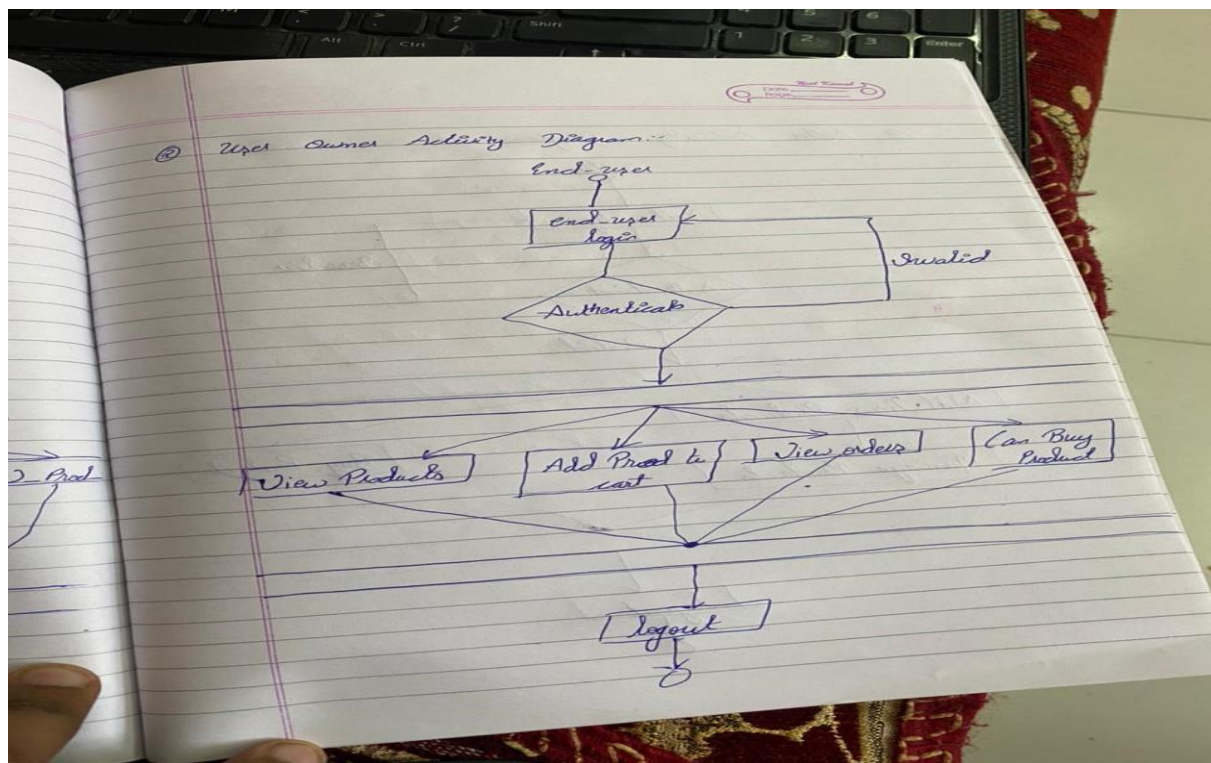 Alt
Ctrl
?
/
Shift
1
2
3
5
6
Enter
Date
Page
② User Owner Activity Diagram:-
End-user
end-user
login
Invalid
Authenticate
View Products
Add Prod to
cart
View orders
Can Buy
Product
Prod
logout